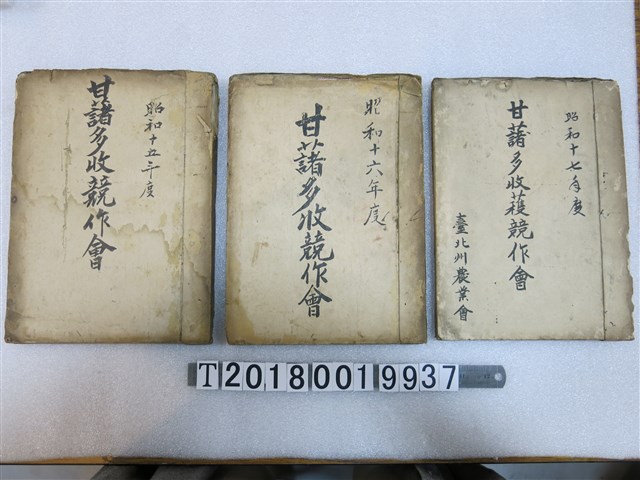 昭和十五年度
甘藷多收競作會
昭和十六年度
甘藷多收競作會
昭和十七年度
甘藷多收穫競作會
臺北州農業會
T20180019937